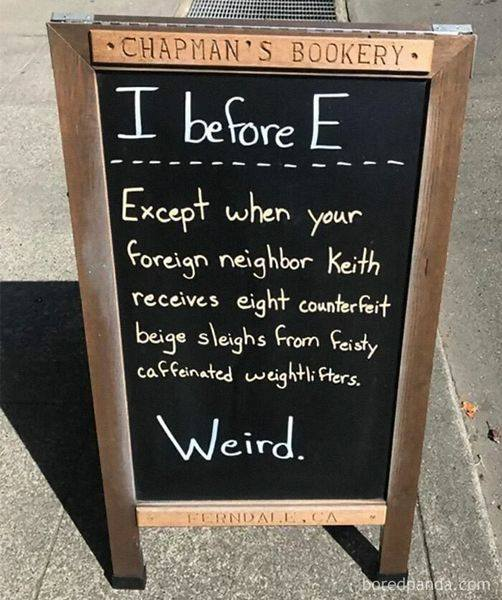 • CHAPMAN'S BOOKERY •
I before E
Except when your
foreign neighbor Keith
receives eight counterfeit
beige sleighs from feisty
caffeinated weightlifters.
Weird.
FERNDALE, CA
boredpanda.com